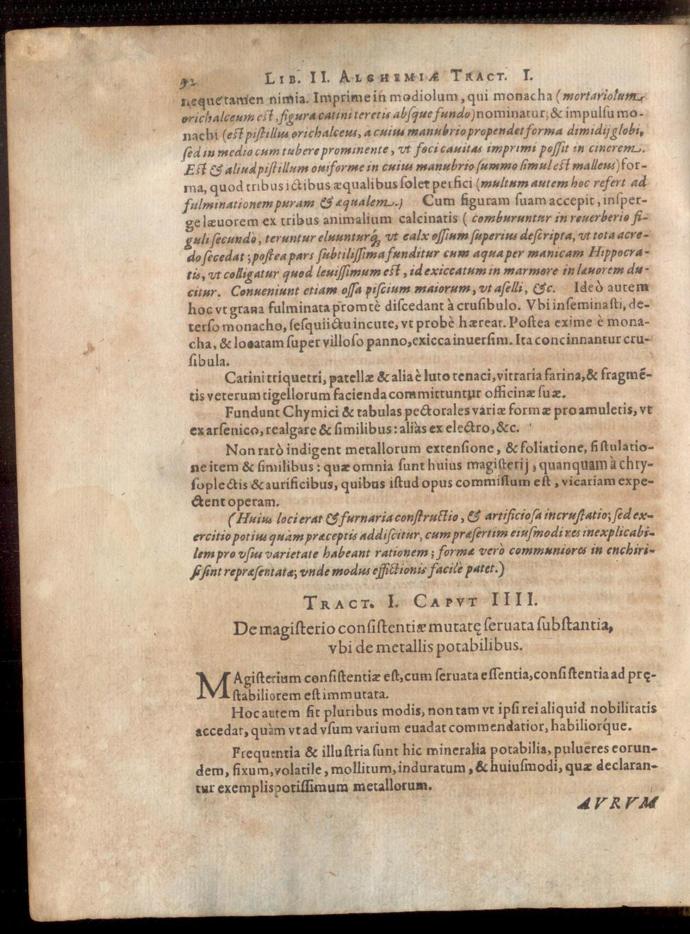 92 LIB. II. ALCHEMIÆ TRACT. I.
neque tamen nimia. Imprime in modiolum, qui monacha (mortariolum
orichalceum est, figura catini teretis absque fundo) nominatur; & impulsu mo-
nachi (est pistillus orichalceus, a cuius manubrio propendet forma dimidij globi,
sed in medio cum tubere prominente, vt foci cauitas imprimi possit in cinerem.
Est & aliud pistillum ouiforme in cuius manubrio summo simul est malleus) for-
ma, quod tribus ictibus æqualibus solet perfici (multum autem hoc refert ad
fulminationem puram & æqualem.) Cum figuram suam accepit, insper-
ge læuorem ex tribus animalium calcinatis (comburuntur in reuerberio fi-
guli secundò, teruntur eluunturq́, vt calx ossium superius descripta, vt tota acre-
do secedat; postea pars subtilissima funditur cum aqua per manicam Hippocra-
tis, vt colligatur quod leuissimum est, id exiccatum in marmore in læuorem du-
citur. Conueniunt etiam ossa piscium maiorum, vt aselli, &c. Ideò autem
hoc vt grana fulminata promtè discedant à crusibulo. Vbi inseminasti, de-
terso monacho, sesquiictu incute, vt probè hæreat. Postea exime è mona-
cha, & locatam super villoso panno, exicca inuersim. Ita concinnantur cru-
sibula.
Catini triquetri, patellæ & alia è luto tenaci, vitraria farina, & fragmē-
tis veterum tigellorum facienda committuntur officinæ suæ.
Fundunt Chymici & tabulas pectorales variæ formæ pro amuletis, vt
ex arsenico, realgare & similibus: aliàs ex electro, &c.
Non rarò indigent metallorum extensione, & foliatione, fistulatio-
ne item & similibus: quæ omnia sunt huius magisterij, quanquam à chry-
soplectis & aurificibus, quibus istud opus commissum est, vicariam expe-
ctent operam.
(Huius loci erat & furnaria constructio, & artificiosa incrustatio; sed ex-
ercitio potius quàm præceptis addiscitur, cum præsertim eiusmodi res inexplicabi-
lem pro vsus varietate habeant rationem; formæ verò communiores in enchiri-
sisint repræsentatæ; vnde modus effictionis facilè patet.)
TRACT. I. CAPVT IIII.
De magisterio consistentiæ mutatę seruata substantia,
vbi de metallis potabilibus.
MAgisterium consistentiæ est, cum seruata essentia, consistentia ad pręs-
tabiliorem est immutata.
Hoc autem fit pluribus modis, non tam vt ipsi rei aliquid nobilitatis
accedat, quàm vt ad vsum varium euadat commendatior, habiliorque.
Frequentia & illustria sunt hic mineralia potabilia, pulueres eorun-
dem, fixum, volatile, mollitum, induratum, & huiusmodi, quæ declaran-
tur exemplis potissimum metallorum.
AVRVM